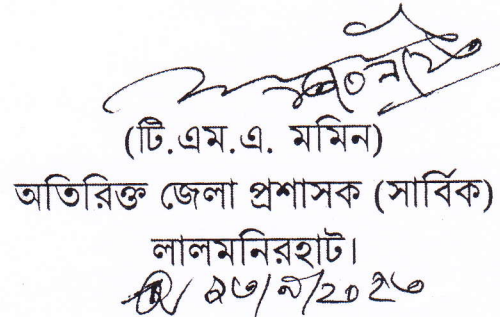 (টি.এম.এ. মমিন)
অতিরিক্ত জেলা প্রশাসক (সার্বিক)
লালমনিরহাট।